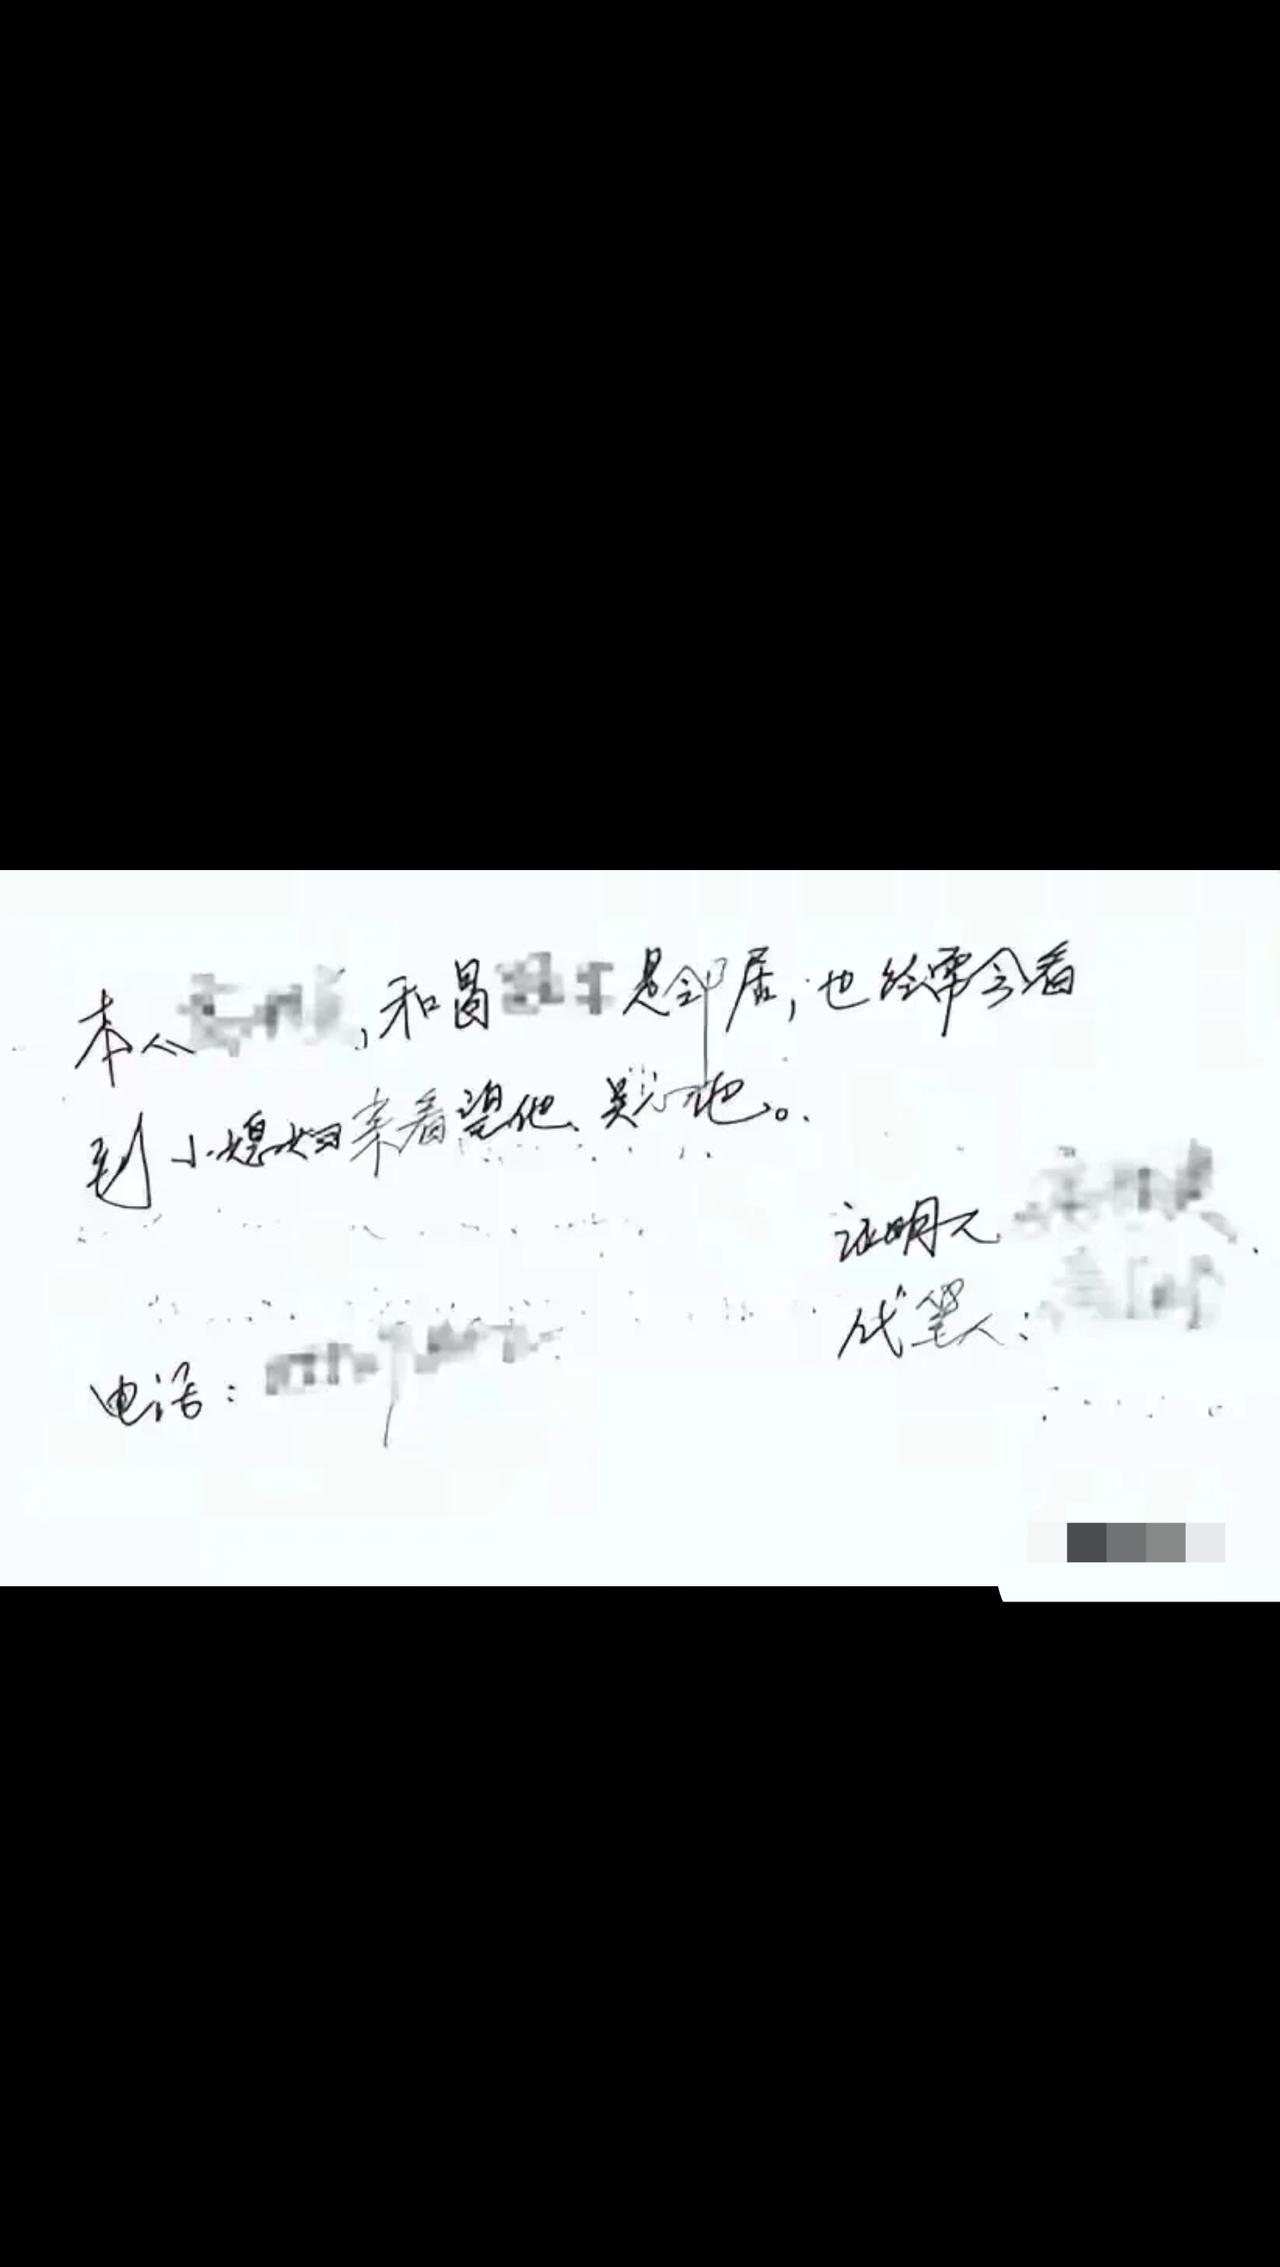 本人 ,和冒 是邻居,也经常会看
到小媳妇来看望他、 他。
证明人
代笔人:
电话: